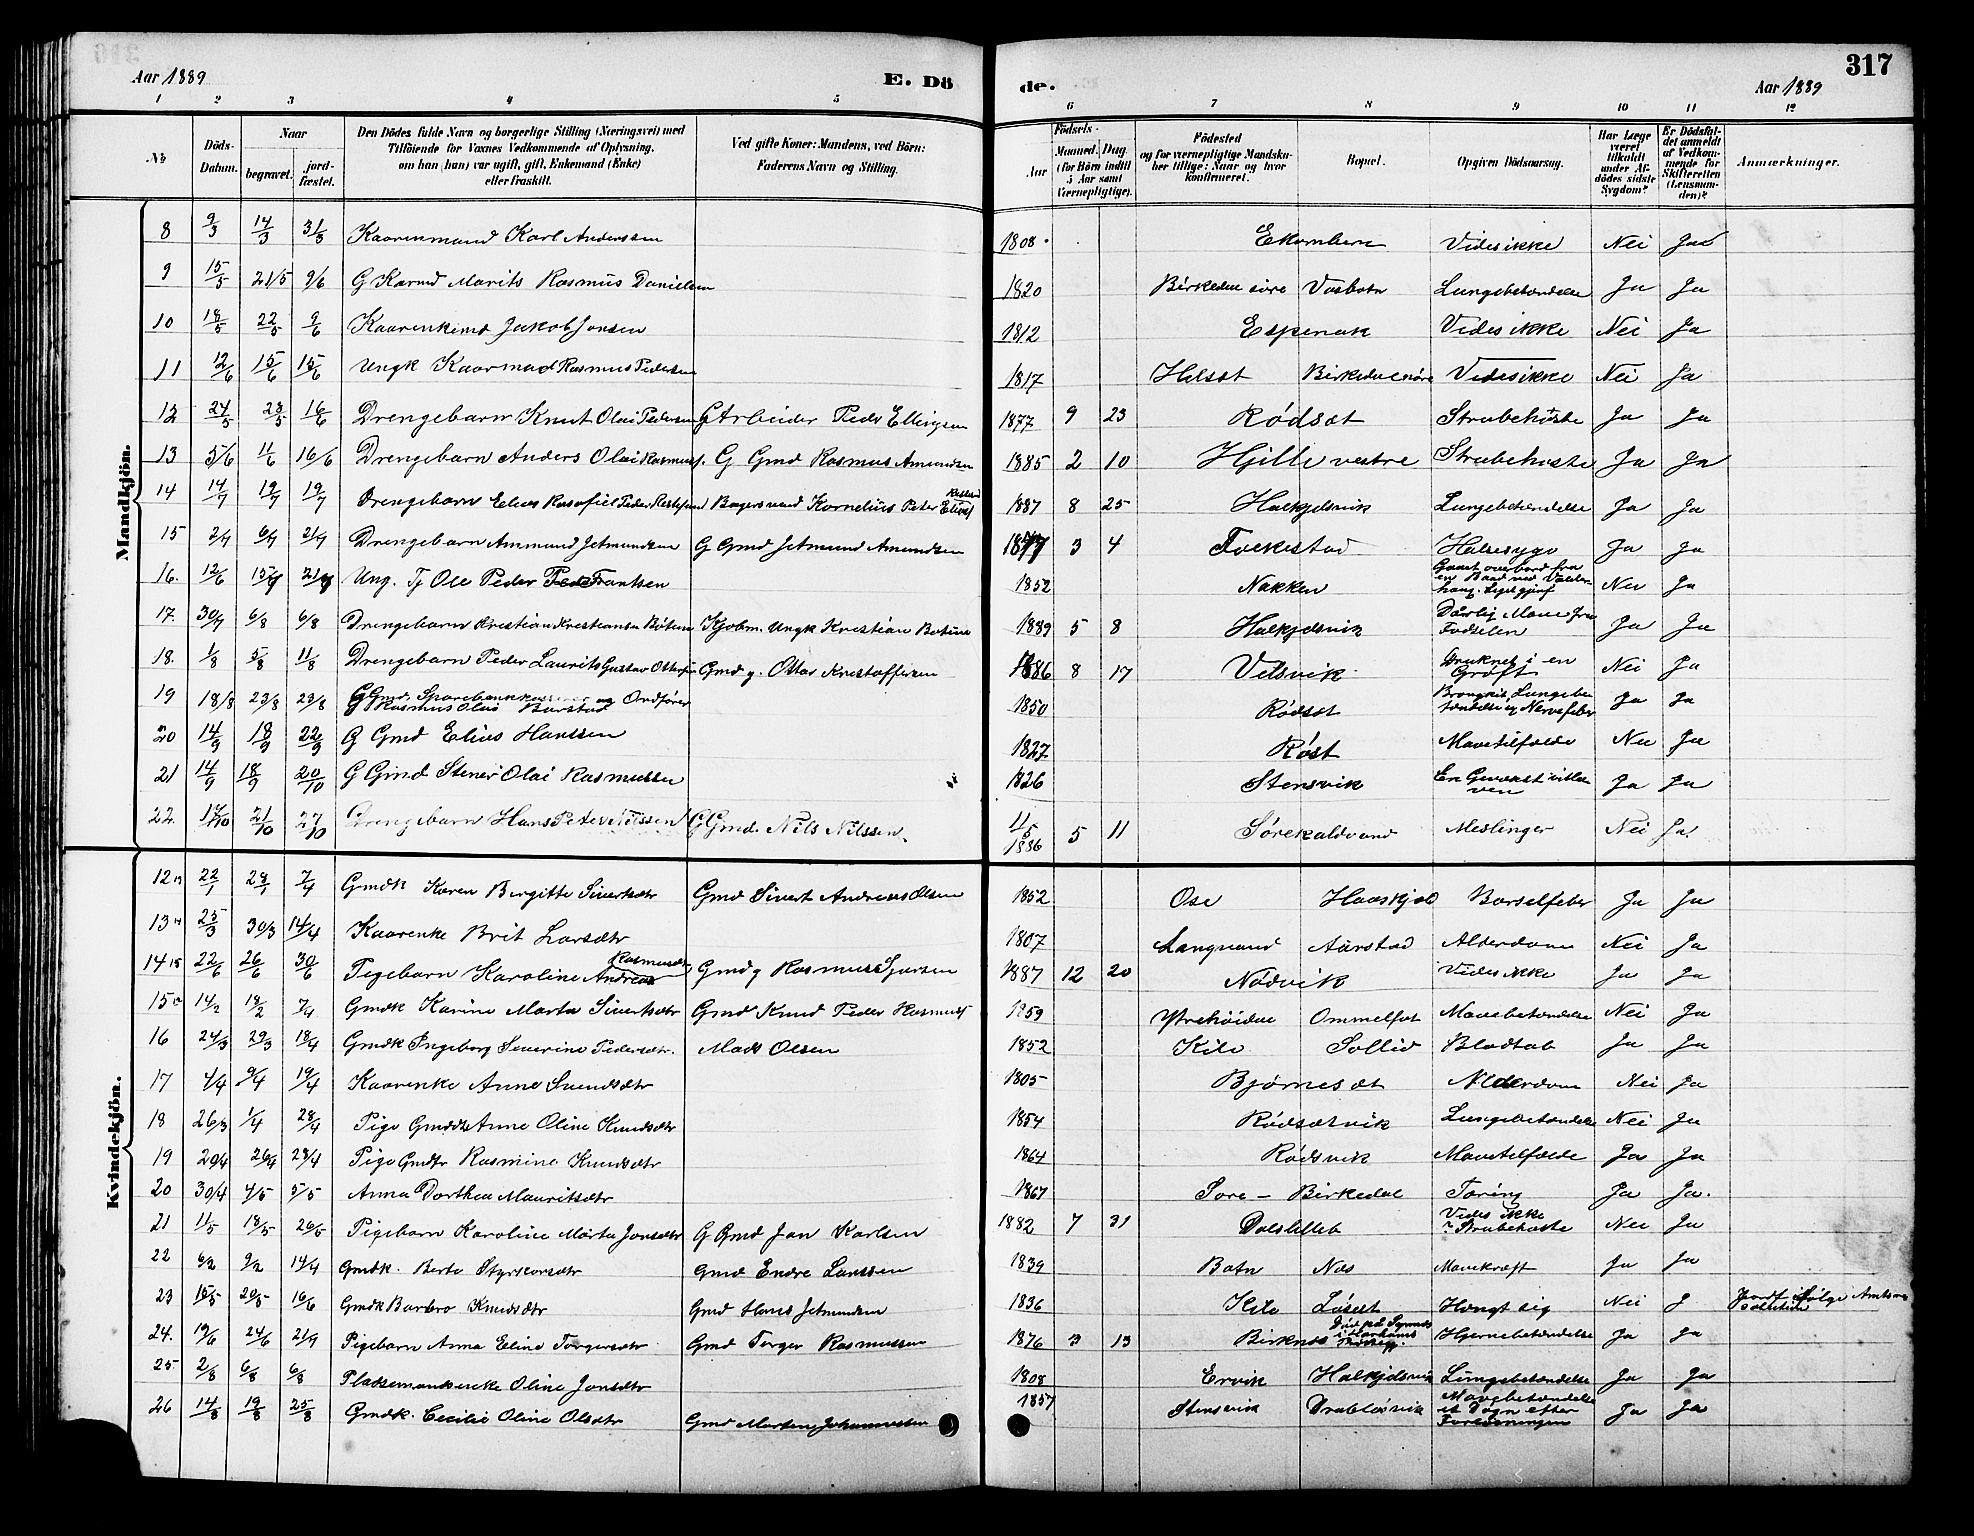 Aar 1889
E. Dö
de.
Aar 1889
317
1 2 3 4 5 6 7 8 9 10 11 12
No
Döds-Datum.
Naar
begravet.
jord-fæstet.
Den Dödes fulde Navn og borgerlige Stilling (Næringsvei) med
Tilföiende for Voxnes Vedkommende af Oplysning,
om han (hun) var ugift, gift, Enkemand (Enke)
eller fraskilt.
Ved gifte Koner: Mandens, ved Börn:
Faderens Navn og Stilling.
Födsels-
Aar
Maaned. Dag
(for Börn indtil
5 Aar samt
Værnepligtige).
Födested
og for værnepligtige Mandska-
ber tillige: Naar og hvor
konfirmeret.
Bopæl.
Opgiven Dödsaarsag.
Har Læge
været
tilkaldt
under Af-
dödes sidste
Sygdom?
Er Dödsfal-
det anmeldt
af Vedkom-
mende for
Skifteretten
(Lensman-
den)?
Anmærkninger.
Mandkjön.
8 9/3 14/3 31/3 Kaarenmand Karl Anderssen 1808. Ekornbern Vides ikke Nei Ja
9 15/5 21/5 9/6 G Karmd Marits Rasmus Danielsen 1820 Birkedal söre Vasbotn Lungebetændelse Ja Ja
10 18/5 22/5 9/6 Kaarenkemd Jakob Jonsen 1812 Espenak Vides ikke Nei Ja
11 12/6 15/6 15/6 Ungk Kaarmad Rasmus Pedersen 1817 Helsæt Birkedal nöre Vides ikke Nei Ja
12 24/5 28/5 16/6 Drengebarn Knut Olai Pedersen G Arbeider Peder Ellingsen 1877 9 23 Rødsæt Strubehoste Ja Ja
13 5/6 11/6 16/6 Drengebarn Anders Olai Rasmuss. G Gmd Rasmus Amundsen 1885 2 10 Hjille vestre Strubehoste Ja Ja
14 14/7 19/7 19/7 Drengebarn Elias Peder Bagersvend Kornelius Peter Elias 1887 8 25 Halkjelsvik Lungebetændelse Ja Ja
15 2/7 6/7 21/7 Drengebarn Ammund Jetmundsen G Gmd Jetmund Amundsen 3 4 Folkestad Halsesyge Ja Ja
16. 12/6 15/7 21/7 Ung. Tj Ole Peder Frantsen 1852 Nakken Gaaet overbord fra en Baad ved Nei Ja
17. 30/7 6/8 6/8 Drengebarn Kristian Kristiansen Botnen Kjøbm. Ungk Kristian Botnen 1889 5 8 Halkjelsvik Daarlig Mave fra Fødselen Ja Ja
18. 1/8 5/8 11/8 Drengebarn Peder Laurits Gustav Ottarsen Gmd g. Ottar Kristoffersen 1886 8 17 Velsvik Druknet i en Grøft Nei Ja
19 18/8 23/8 23/8 G Gmd. Sparebankkasserer og Ordfører Rasmus Olai Barstad 1850 Rødsæt Bronkit, Lungebetændelse og Nervefeber Ja Ja
20 14/9 18/9 22/9 G Gmd Elias Hanssen 1827 Røst Mavetilfælde Nei Ja
21 14/9 18/9 20/10 G Gmd Stener Olai Rasmussen 1826 Stensvik En Gevækst i Ja Ja
22. 17/10 21/10 27/10 Drengebarn Hans Peter Nilssen G Gmd. Nils Nilssen. 11/5 1886 5 11 Sørekaldvand Meslinger Nei Ja.
Kvindekjön.
12 22/1 28/1 7/4 Gmdk Karen Birgitte Sivertsdtr Gmd Sivert Andreas Olsen 1852 Ose Haaskjold Barselfeber Ja Ja
13 25/3 30/3 14/4 Kaarenke Brit Larsdtr 1807 Langvand Aarstad Alderdom Nei Ja
14 22/6 26/6 30/6 Pigebarn Karoline Andrea Rasmusdtr Gmd g Rasmus 1887 12 20 Nødvik Vides ikke Ja Ja
15 14/2 18/2 7/4 Gmdk Karine Marta Sivertsdtr Gmd Knud Peder Rasmuss 1859 Ytrehøidal Ommelfot Mavebetændelse Nei Ja
16 24/3 29/3 18/4 Gmdk Ingeborg Severine Pedersdtr. Mads Olsen 1852 Kile Sollid Blodtab Ja Ja
17 4/4 9/4 19/4 Kaarenke Anne Svendsdtr 1805 Bjørnesæt Alderdom Nei Ja
18 26/3 1/4 28/4 Pige Gmddtr Anne Oline Knudsdtr 1854 Rødsætvik Lungebetændelse Nei Ja
19 20/4 26/4 28/4 Pige Gmdtr Rasmine Knudsdtr 1864 Rødsvik Mavetilfælde Ja Ja
20 30/4 4/5 5/5 Anna Dorthea Mauritsdtr 1867 Søre- Birkedal Tæring Ja Ja.
21 11/5 18/5 26/5 Pigebarn Karoline Marta Jonsdtr G Gmd Jon Karlsen 1882 7 31 Dalslilleb Vides ikke ? Strubehoste Nei Ja
22 6/2 9/2 14/4 Gmdk. Berte Styrkorsdtr Gmd Endre Larssen 1839 Botn Nes Mavekræft Ja Ja
23 15/5 20/5 16/6 Gmdk Barbro Knudsdtr Gmd Hans Jetmundsen 1836 Kile Løset Hængt sig Nei J Jordf. ifølge Amtsresolution
24. 19/6 24/6 21/7 Pigebarn Anna Eline Torgersdtr Gmd Torger Rasmussen 1876 3 13 Birknes i Harhams Hjernebetændelse Ja Ja
25 2/8 6/8 6/8 Pladsemandsenke Oline Jonsdtr 1808 Ervik Halkjelsvik Lungebetændelse Ja Ja
26 14/8 19/8 25/8 Gmdk. Cecilie Oline Olsdtr Gmd Marten Johannessen 1857 Stensvik Drabløsvik Mavebetændelse et Døgn efter Forløsningen Ja Ja